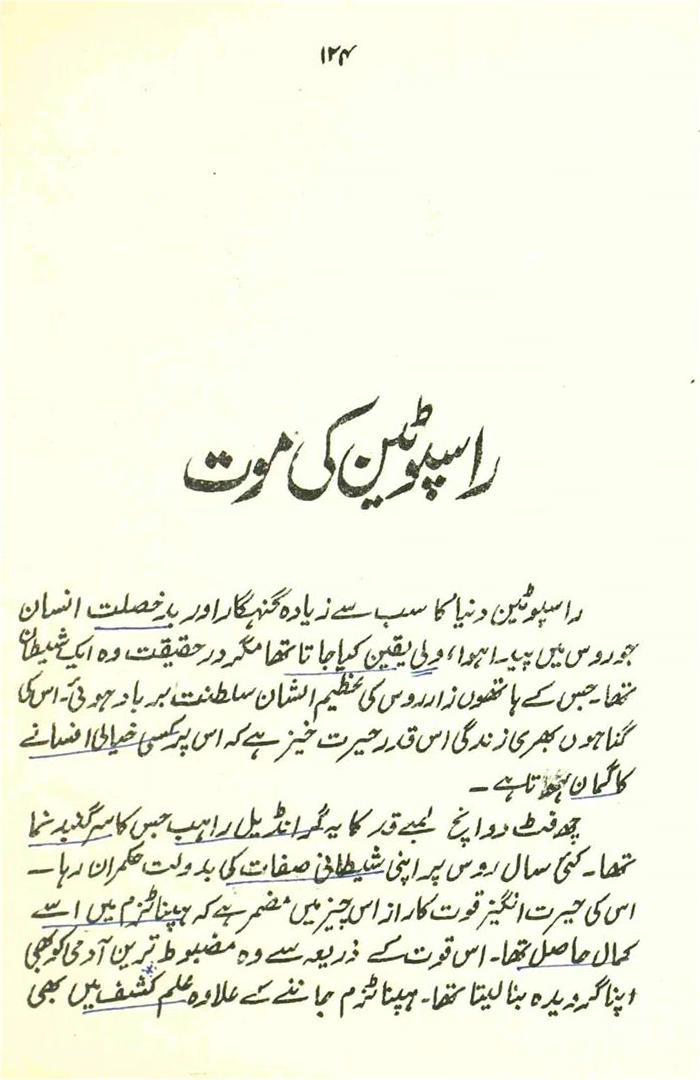 ۱۲۴
راسپوٹین کی موت
راسپوٹین دنیا کا سب سے زیادہ گنہگار اور بدخصلت انسان
جو روس میں پیدا ہوا، ولی یقین کیا جاتا تھا مگر درحقیقت وہ ایک شیطان
تھا۔ جس کے ہاتھوں زارِ روس کی عظیم الشان سلطنت برباد ہوئی۔ اس کی
گناہوں بھری زندگی اس قدر حیرت خیز ہے کہ اس پر کسی خیالی افسانے
کا گمان ہوتا ہے۔
چھ فٹ دو انچ لمبے قد کا یہ گرانڈیل راہب جس کا سر گنبد نما
تھا۔ کئی سال روس پر اپنی شیطانی صفات کی بدولت حکمران رہا۔
اس کی حیرت انگیز قوت کا راز اس چیز میں مضمر ہے کہ ہپناٹزم میں اسے
کمال حاصل تھا۔ اس قوت کے ذریعہ سے وہ مضبوط ترین آدمی کو بھی
اپنا گرویدہ بنا لیتا تھا۔ ہپناٹزم جاننے کے علاوہ علم کشف میں بھی